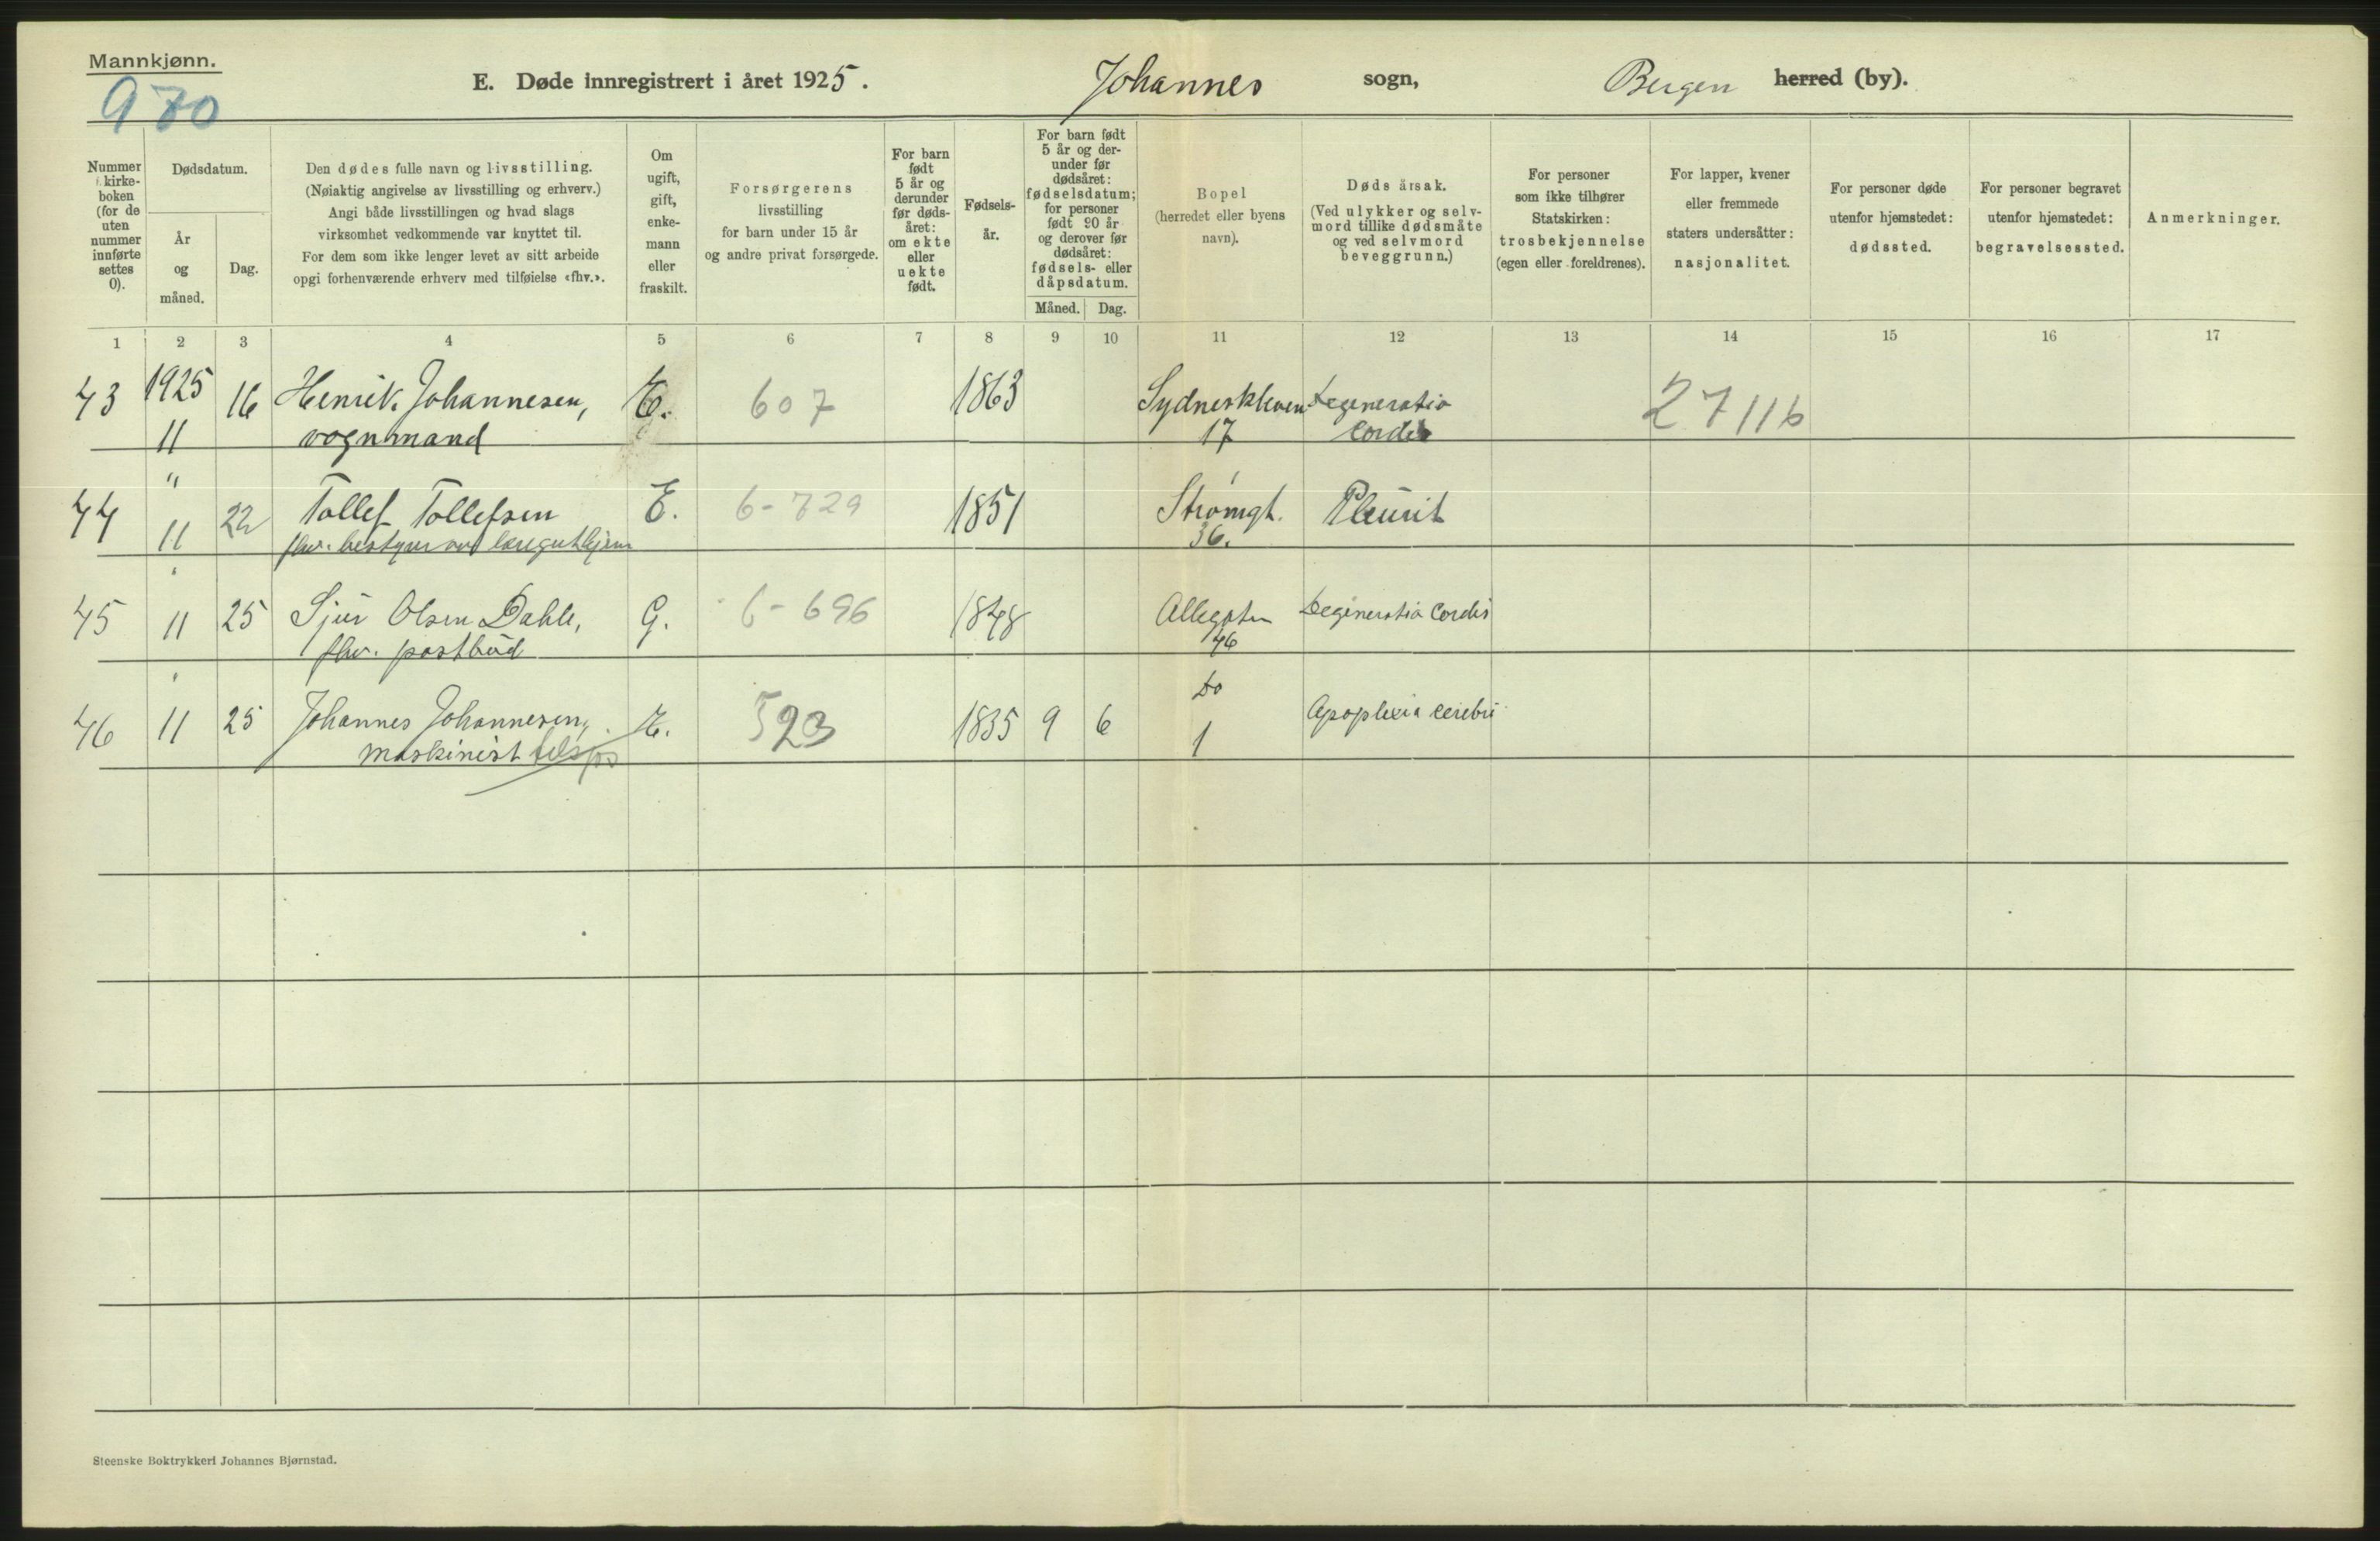 Mannkjønn.
970
E. Døde innregistrert i året 1925. Johannes sogn, Bergen herred (by).
Nummer
i kirke-
boken
(for de
uten
nummer
innførte
settes
0).
Dødsdatum.
År
og
måned.
Dag.
Den dødes fulle navn og livsstilling.
(Nøiaktig angivelse av livsstilling og erhverv.)
Angi både livsstillingen og hvad slags
virksomhet vedkommende var knyttet til.
For dem som ikke lenger levet av sitt arbeide
opgi forhenværende erhverv med tilføielse «fhv.».
Om
ugift,
gift,
enke-
mann
eller
fraskilt.
Forsørgerens
livsstilling
for barn under 15 år
og andre privat forsørgede.
For barn
født
5 år og
derunder
før døds-
året:
om ekte
eller
uekte
født.
Fødsels-
år.
For barn født
5 år og der-
under før
dødsåret:
fødselsdatum;
for personer
født 90 år
og derover før
dødsåret:
fødsels- eller
dåpsdatum.
Måned. Dag.
Bopel
(herredet eller byens
navn).
Dødsårsak.
(Ved ulykker og selv-
mord tillike dødsmåte
og ved selvmord
beveggrunn.)
For personer
som ikke tilhører
Statskirken:
trosbekjennelse
(egen eller foreldrenes).
For lapper, kvener
eller fremmede
staters undersåtter:
nasjonalitet.
For personer døde
utenfor hjemstedet:
dødssted.
For personer begravet
utenfor hjemstedet:
begravelsessted.
Anmerkninger.
1 2 3 4 5 6 7 8 9 10 11 12 13 14 15 16 17
43 1925 16 Henrik Johannesen, E. 607 1863 Sydneskleven Degeneratio 27116
11 vognmand 17 Cordis
"
44 11 22 Tollef Tollefsen E. 6-729 1851 Strømgt. Pleurit
fhv. bestyrer av 36.
"
45 11 25 Sjur Olsen Dahle, G. 6-696 1848 Allegaten Degeneratio Cordis
fhv. postbud 46
" Do
46 11 25 Johannes Johannesen, E. 523 1835 9 6 1 Apoplexia cerebri
maskinist
Steenske Boktrykkeri Johannes Bjørnstad.